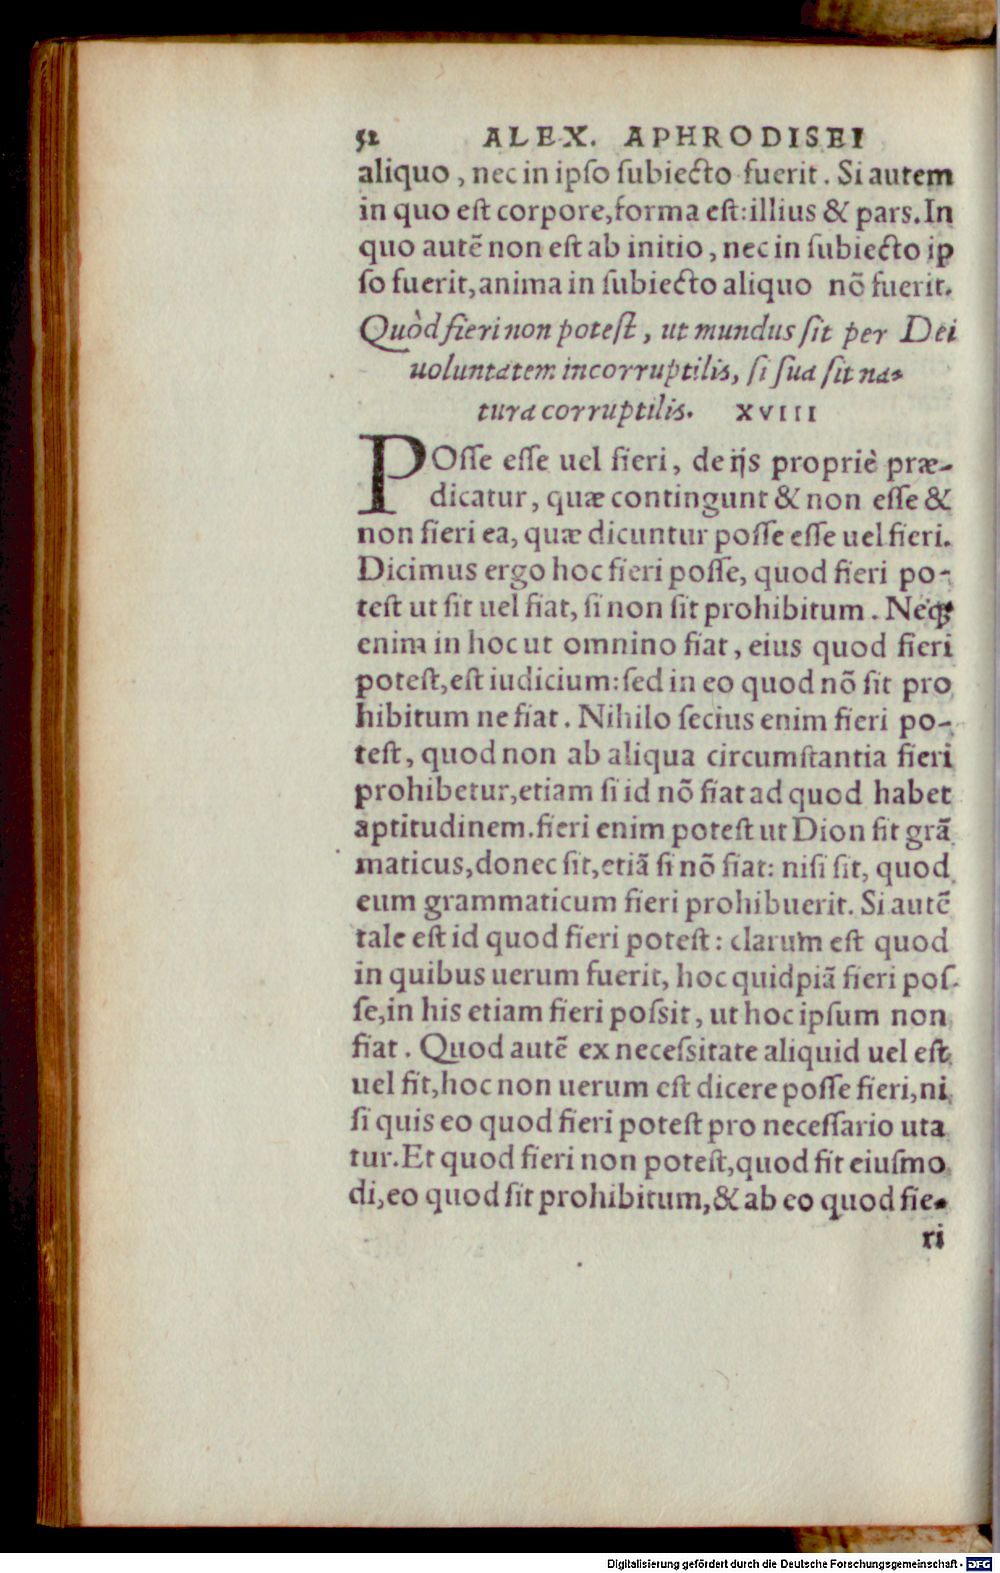 52 ALEX. APHRODISEI
aliquo, nec in ipſo ſubiecto fuerit. Si autem
in quo eſt corpore, forma eſt: illius & pars. In
quo autē non eſt ab initio, nec in ſubiecto ip
ſo fuerit, anima in ſubiecto aliquo nō fuerit.
Quòd fieri non poteſt, ut mundus ſit per Dei
uoluntatem incorruptilis, ſi ſua ſit na-
tura corruptilis. XVIII
POſſe eſſe uel fieri, de ijs propriè præ-
dicatur, quæ contingunt & non eſſe &
non fieri ea, quæ dicuntur poſſe eſſe uel fieri.
Dicimus ergo hoc fieri poſſe, quod fieri po-
teſt ut ſit uel fiat, ſi non ſit prohibitum. Neq;
enim in hoc ut omnino fiat, eius quod fieri
poteſt, eſt iudicium: ſed in eo quod nō ſit pro
hibitum ne fiat. Nihilo ſecius enim fieri po-
teſt, quod non ab aliqua circumſtantia fieri
prohibetur, etiam ſi id nō fiat ad quod habet
aptitudinem. fieri enim poteſt ut Dion fit grā
maticus, donec ſit, etiā ſi nō fiat: niſi ſit, quod
eum grammaticum fieri prohibuerit. Si autē
tale eſt id quod fieri poteſt: clarum eſt quod
in quibus uerum fuerit, hoc quidpiā fieri poſ-
ſe, in his etiam fieri poſsit, ut hoc ipſum non
fiat. Quod autē ex neceſsitate aliquid uel eſt
uel fit, hoc non uerum eſt dicere poſſe fieri, ni
ſi quis eo quod fieri poteſt pro neceſſario uta
tur. Et quod fieri non poteſt, quod fit eiuſmo
di, eo quod ſit prohibitum, & ab eo quod fie-
ri
Digitalisierung gefördert durch die Deutsche Forschungsgemeinschaft - DFG